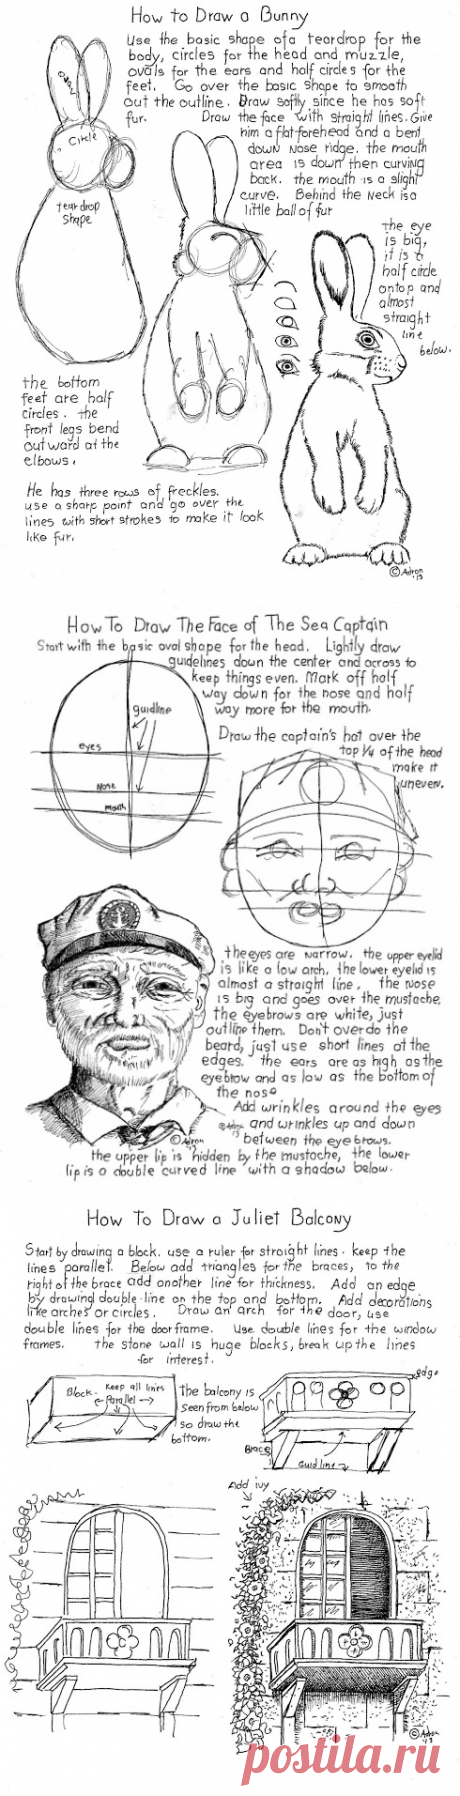 How to Draw a Bunny
Use the basic shape of a teardrop for the
body, circles for the head and muzzle,
ovals for the ears and half circles for the
feet. Go over the basic shape to smooth
out the outline. Draw softly since he has soft
fur. Draw the face with straight lines. Give
him a flat forehead and a bent
down nose ridge. the mouth
area is down then curving
back. the mouth is a slight
curve. Behind the neck is a
little ball of fur
Circle
tear drop
shape
the eye
is big,
it is a
half circle
on top and
almost
straight
line
below.
the bottom
feet are half
circles. the
front legs bend
outward at the
elbows.
He has three rows of freckles.
use a sharp point and go over the
lines with short strokes to make it look
like fur.
© Adron
'13
How To Draw The Face of The Sea Captain
Start with the basic oval shape for the head. Lightly draw
guidelines down the center and across to
keep things even. Mark off half
way down for the nose and half
way more for the mouth.
guidline
eyes
Nose
mouth
Draw the captain's hat over the
top 1/4 of the head
make it
uneven.
the eyes are narrow. the upper eyelid
is like a low arch, the lower eyelid is
almost a straight line. the nose
is big and goes over the mustache.
the eyebrows are white, just
outline them. Don't over do the
beard, just use short lines at the
edges. the ears are as high as the
eyebrow and as low as the bottom of
the nose
Add wrinkles around the eyes
and wrinkles up and down
between the eyebrows.
© Adron
'13
© Adron
'13
the upper lip is hidden by the mustache, the lower
lip is a double curved line with a shadow below.
How To Draw a Juliet Balcony
Start by drawing a block. use a ruler for straight lines. keep the
lines parallel. Below add triangles for the braces, to the
right of the brace add another line for thickness. Add an edge
by drawing double line on the top and bottom. Add decorations
like arches or circles. Draw an arch for the door, use
double lines for the door frame. Use double lines for the window
frames. the stone wall is huge blocks, break up the lines
for interest.
Block. Keep all lines
parallel
the balcony is
seen from below
so draw the
bottom.
edge
Brace
Guid line
Add ivy
© Adron
'13
postila.ru